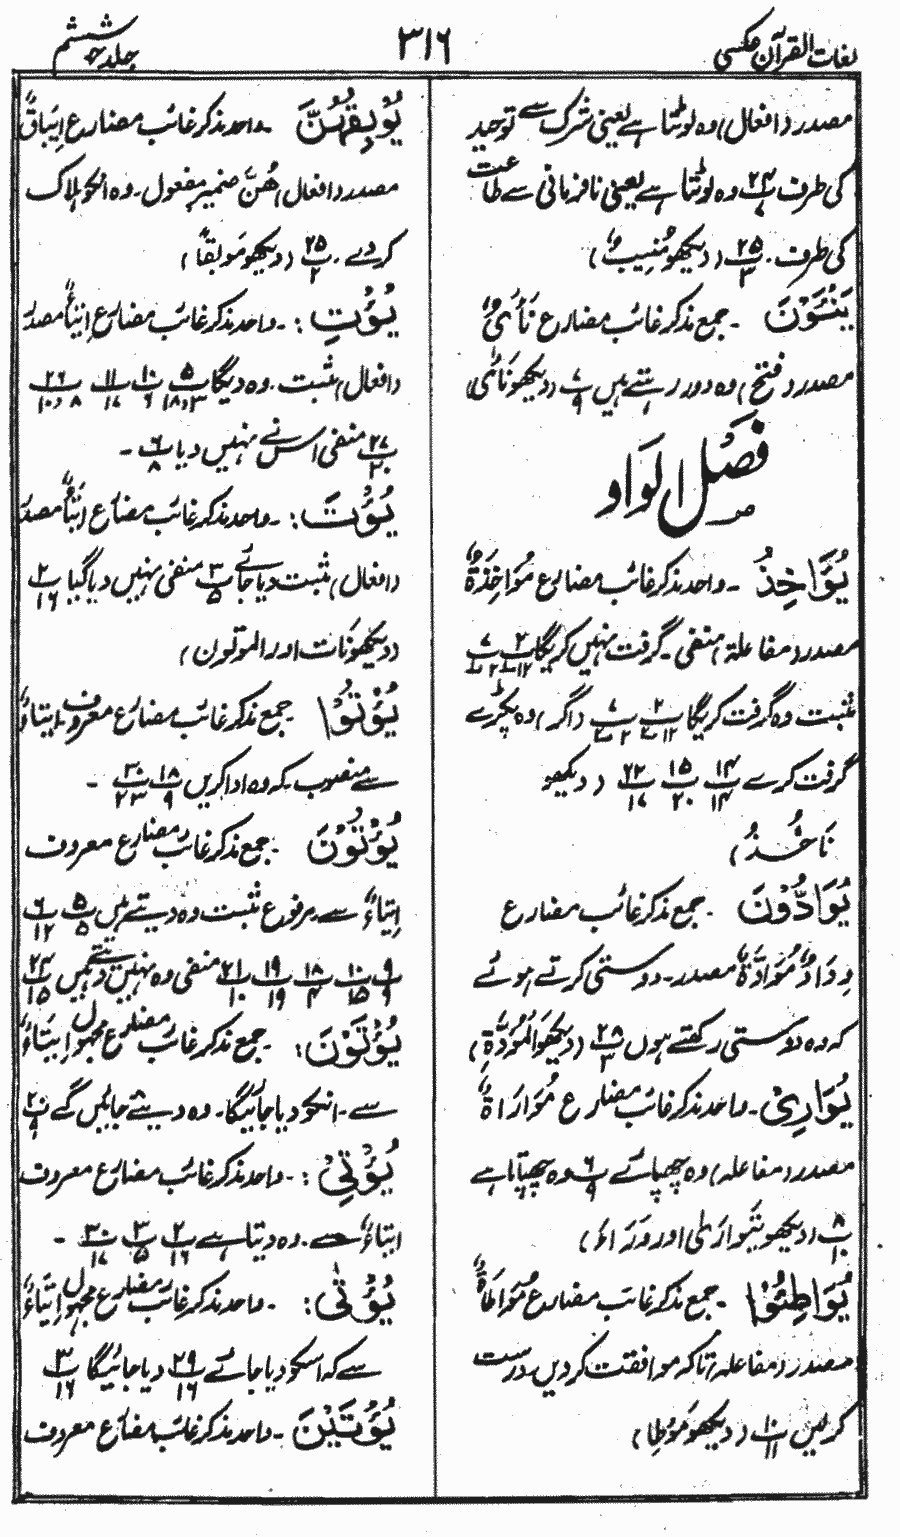 لغات القرآن عکسی
۳۱۶
جلد ششم
مصدر (افعال) وہ لوٹتا ہے یعنی شرک سے توحید
کی طرف ۲۴ وہ لوٹتا ہے یعنی نافرمانی سے طاعت
کی طرف۔ ۲۵/۳ (دیکھو مُنِیبٌ)
یَنْـَٔوْنَ ۔ جمع مذکر غائب مضارع نَأْیٌ
مصدر (فتح) وہ دور رہتے ہیں ۷/۹ (دیکھو نَاٰی)
فصل الواو
یُؤَاخِذُ ۔ واحد مذکر غائب مضارع مُؤَاخِذَةٌ
مصدر (مفاعلة) منفی۔ گرفت نہیں کریگا ۲/۱۲ ۷/۲
مثبت وہ گرفت کریگا ۲/۱۲ ۷/۲ (اگر) وہ پکڑے
گرفت کرے ۱۴/۱۴ ۱۵/۲۰ ۲۲/۱۷ (دیکھو
نَاخُذُ)
یُوَادُّوْنَ ۔ جمع مذکر غائب مضارع
وِدَادٌ مُوَادَّةٌ مصدر۔ دوستی کرتے ہوئے
کہ وہ دوستی رکھتے ہوں ۲۸/۳ (دیکھو اَلْمَوَدَّةِ)
یُوَارِیْ ۔ واحد مذکر غائب مضارع مُوَارَاةٌ
مصدر (مفاعلہ) وہ چھپائے ۶/۹ وہ چھپاتا ہے
۸/۱۰ (دیکھو یتواریٰ اور وَرَاءَ)
یُوَاطِئُوْا ۔ جمع مذکر غائب مضارع مُوَاطَأَةٌ
مصدر (مفاعلہ) تاکہ موافقت کردیں۔ درست
کرلیں ۱۰/۱۱ (دیکھو مَوْطِئًا)
یُوْبِقْهُنَّ ۔ واحد مذکر غائب مضارع اِیْبَاقٌ
مصدر (افعال) هُنَّ ضمیر مفعول۔ وہ انکو ہلاک
کر دے۔ ۲۵/۲ (دیکھو مَوْبِقًا)
یُؤْتِ :۔ واحد مذکر غائب مضارع اِیْتَاءٌ مصدر
(افعال) مثبت۔ وہ دیگا ۵/۳و۱۸ ۱۰/۶ ۱۱/۱۷ ۲۶/۸و۱۰
۲۷/۲۰ منفی اس نے نہیں دیا ۶/۸ ۔
یُؤْتَ :۔ واحد مذکر غائب مضارع اِیْتَاءٌ مصدر
(افعال) مثبت دیا جائے ۳/۵ منفی نہیں دیا گیا ۲/۱۶
(دیکھو نَات اور المؤتون)
یُؤْتُوْا ۔ جمع مذکر غائب مضارع معروف اِیْتَاءٌ
سے منصوب۔ کہ وہ ادا کریں ۱۸/۹ ۳۰/۲۳ ۔
یُؤْتُوْنَ ۔ جمع مذکر غائب مضارع معروف
اِیْتَاءٌ سے مرفوع مثبت وہ دیتے ہیں ۵/۵ ۶/۱۲
۹/۹ ۱۰/۱۵ ۱۸/۴ ۱۹/۱۹ ۲۱/۱۰ منفی وہ نہیں دیتے ہیں ۲۴/۱۵
یُؤْتَوْنَ :۔ جمع مذکر غائب مضارع مجہول اِیْتَاءٌ
سے ۔ انکو دیا جائیگا۔ وہ دیے جائیں گے ۲۰/۹
یُؤْتِیْ :۔ واحد مذکر غائب مضارع معروف
اِیْتَاءٌ سے ۔ وہ دیتا ہے ۲/۱۶ ۳/۵ ۳۰/۱۷ ۔
یُؤْتٰی :۔ واحد مذکر غائب مضارع مجہول اِیْتَاءٌ
سے کہ اسکو دیا جائے ۲۹/۱۶ دیا جائیگا ۳/۱۶
یُؤْتَیَنَّ ۔ واحد مذکر غائب مضارع معروف